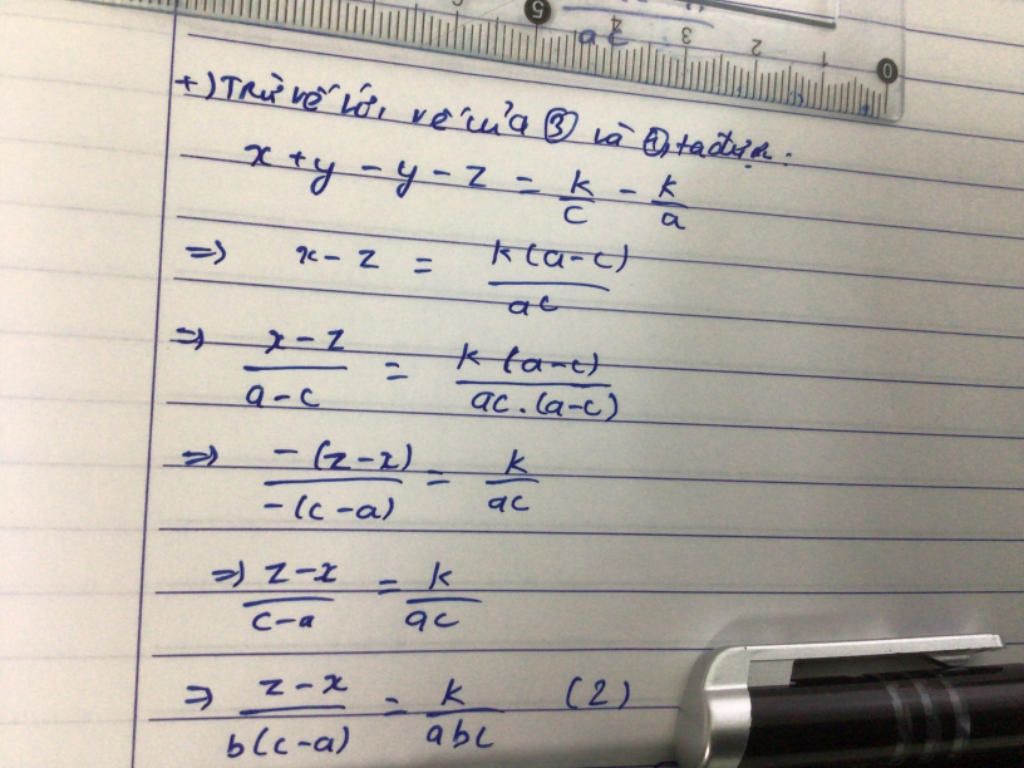 5 4 3 2 1 0
+) Trừ vế với vế của ③ và ①, ta được:
x + y - y - z = k/c - k/a
=> x - z = k(a-c)/ac
=> x - z/a - c = k(a-c)/ac.(a-c)
=> -(z-x)/-(c-a) = k/ac
=> z-x/c-a = k/ac
=> z-x/b(c-a) = k/abc (2)